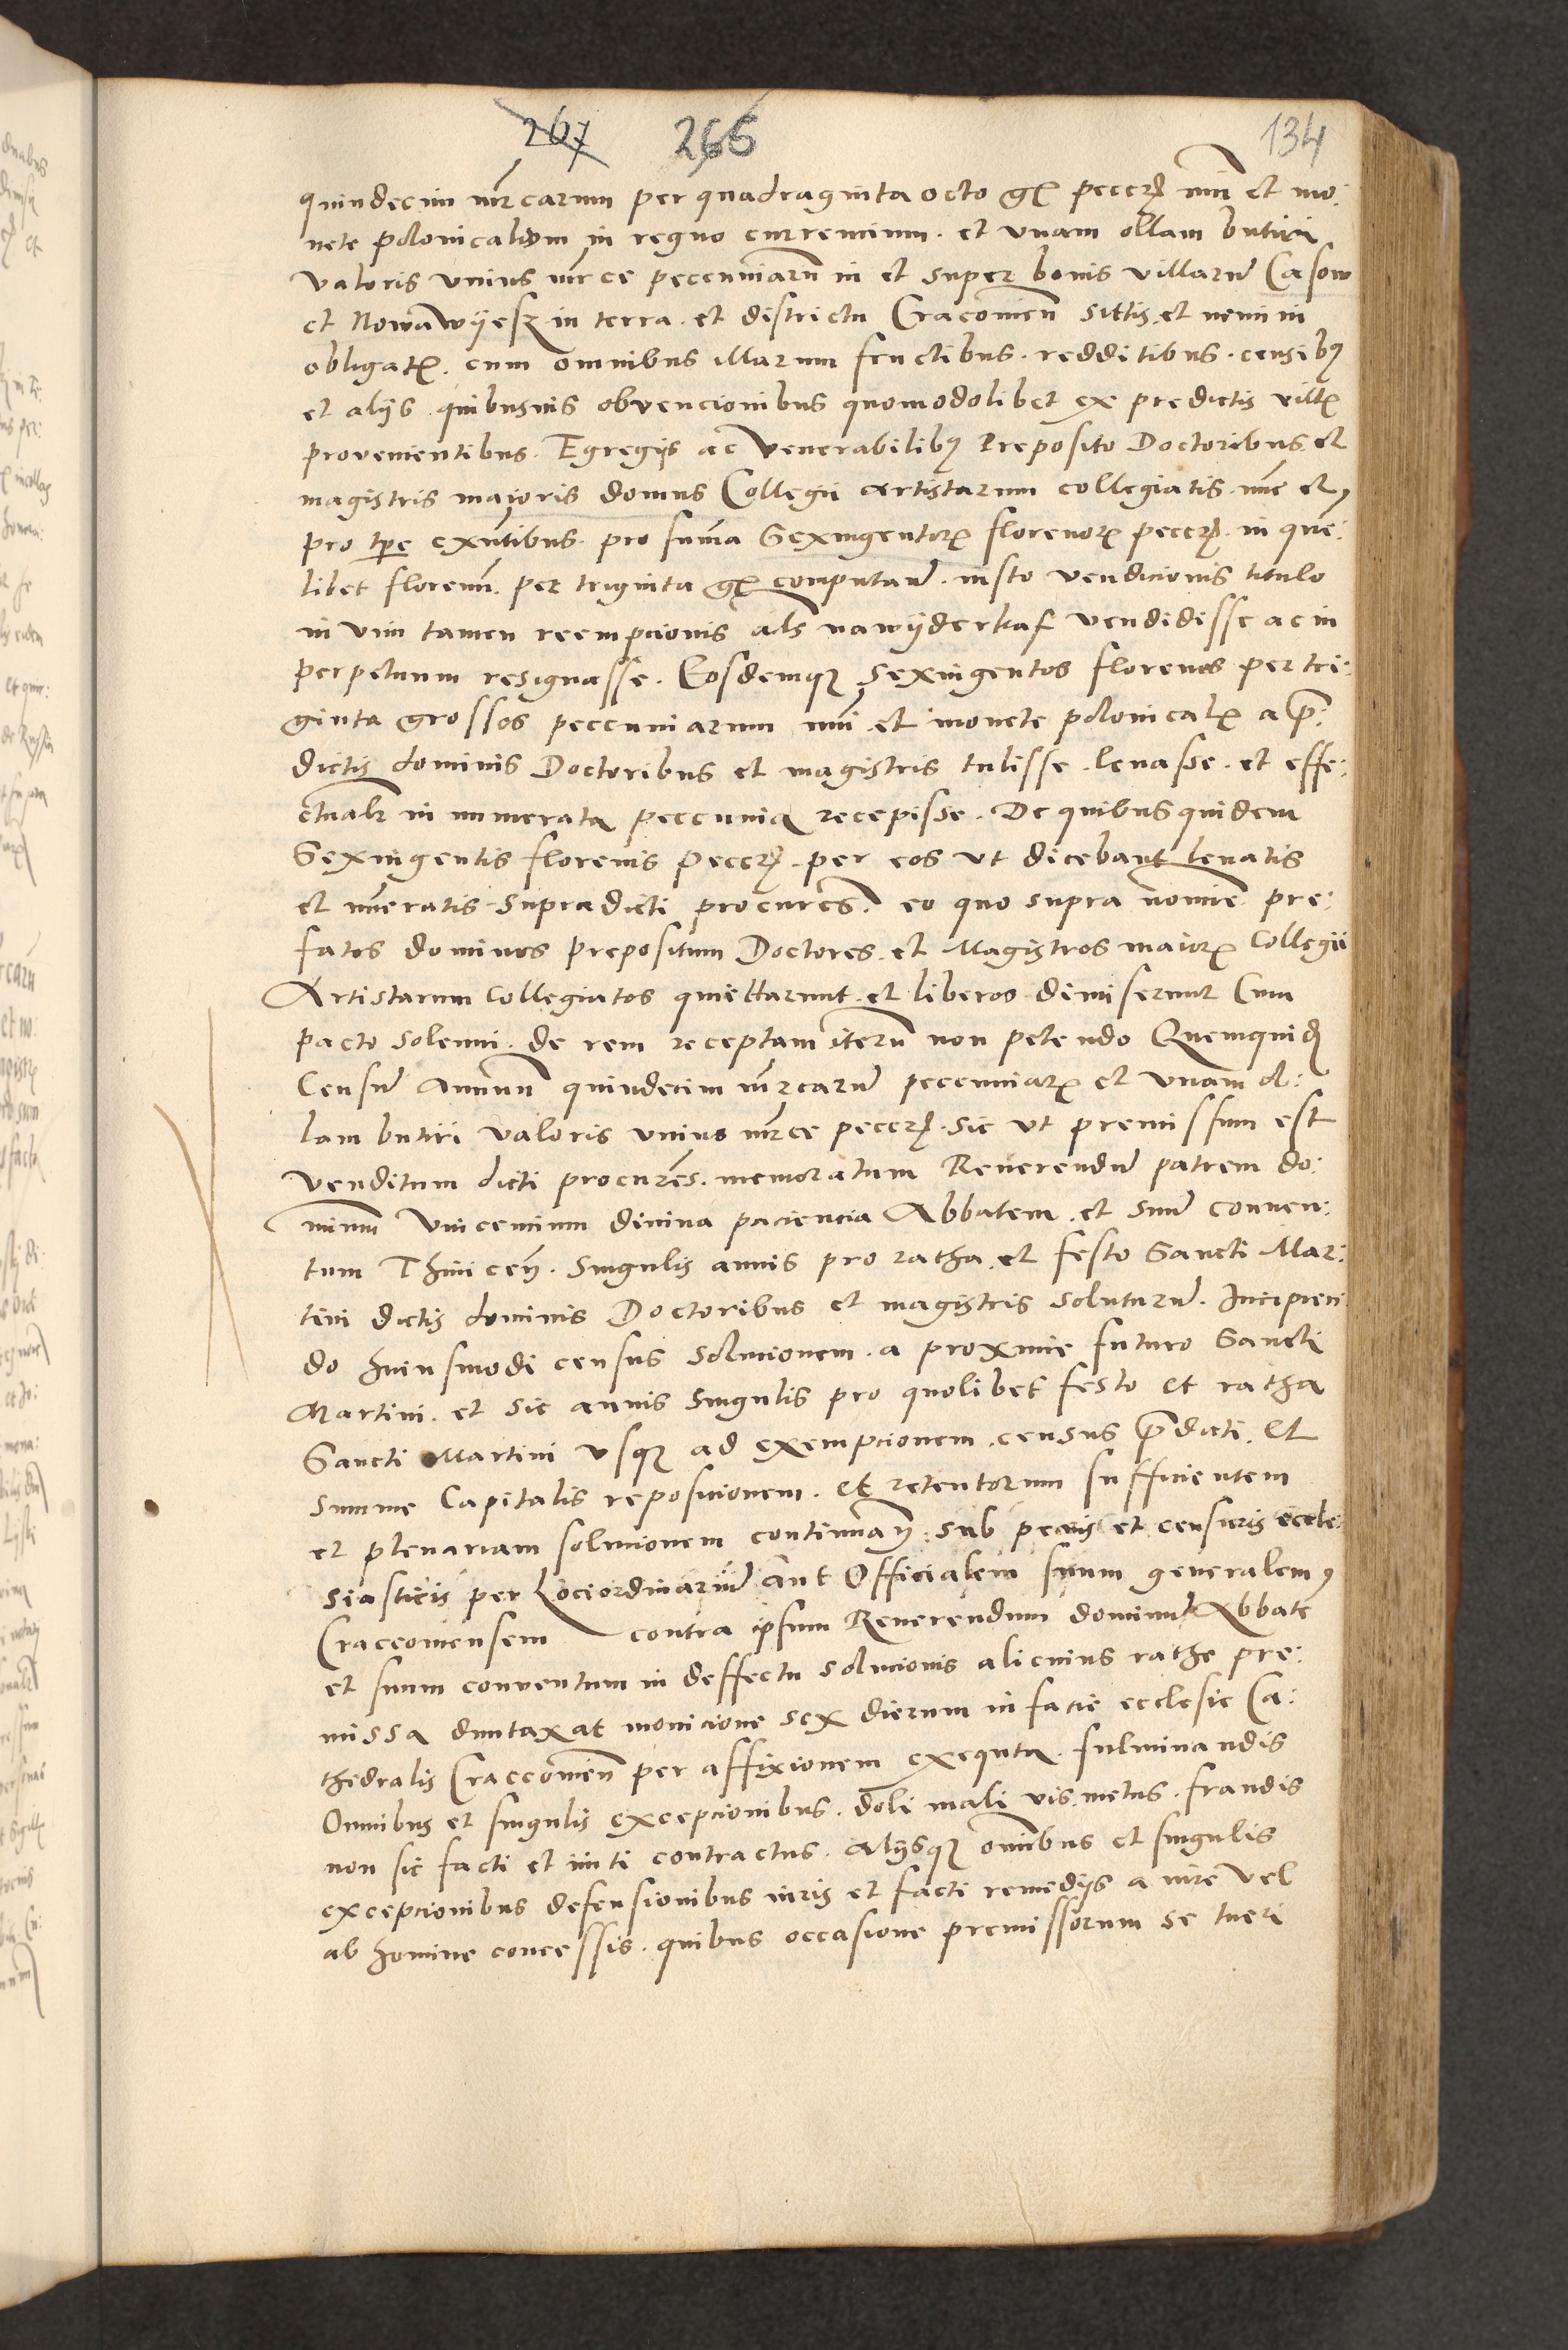 267 266 134
quindecim mrcarum per quadraginta octo gr peccar numi et mo:
nete polonicalium in regno currencium . et vnam ollam butiri
valoris vnius mrce peccuniaru in et super bonis villaru Casow
et Nowawyesz in terra . et districtu Cracouien sittis et nemini
obligatr . cum omnibus illarum fructibus . redditibus . censibus
et alijs quibusuis obvencionibus quomodolibet ex predictis villis
provenientibus . Egregijs ac Venerabilibus Preposito Doctoribus et
magistris maioris domus Collegii Artistarum collegiatis . nunc et
pro tpe exntibus . pro suma Sexingentorum florenorum peccar . in quem:
libet florenum . per triginta gr computando . iusto vendicionis titulo
in vim tamen reempcionis als nawyderkaf vendidisse ac in
perpetuum resignasse . Eosdemque Sexingentos florenos per tri:
ginta grossos peccuniarum numi et monete polonicalr a pre:
dictis dominis Doctoribus et magistris tulisse . leuasse . et effe:
ctualr in numerata peccunia recepisse . De quibus quidem
Sexingentis florenis peccar . per eos vt dicebant leuatis
et numeratis supradicti procures . eo quo supra nomine pre:
fatos dominos prepositum Doctores . et Magistros maioris Collegii
Artistarum Collegiatos quiettarunt . et liberos dimiserunt Cum
pacto solenni . de rem receptam iteru non petendo Quemquid
Censum Annuu quindecim mrcarum peccuniarum et vnam ol:
lam butiri valoris vnius mrce peccar . sic vt premissum est
venditum dicti procures . memoratum Reuerendum patrem do:
minum Vincencium diuina paciencia Abbatem . et suum conuen:
tum Thinicen . Singulis annis pro ratha . et festo Sancti Mar:
tini dictis dominis Doctoribus et magistris soluturum . Incipien
do huiusmodi census solucionem . a proxime futuro Sancti
Martini . et sic annis singulis pro quolibet festo et ratha
Sancti Martini vsque ad exempcionem . census predicti . et
summe Capitalis reposicionem . et retentorum sufficientem
et plenariam solucionem continuan . sub penis et censuris eccle:
siasticis per Lociordinarium aut Officialem suum generalem
Craccouiensem contra ipsum Reuerendum dominum Abbate
et suum conuentum in deffectu solucionis alicuius rathe pre:
missa duntaxat monicione sex dierum in facie ecclesie Ca:
thedralis Craccouien per affixionem exequta . fulminandis
Omnibus et singulis excepcionibus . doli mali vis metus . fraudis
non sic facti et initi contractus . alijsque omibus et singulis
excepcionibus defensionibus iuris et facti remedijs a iure vel
ab homine concessis . quibus occasione premissorum se tueri